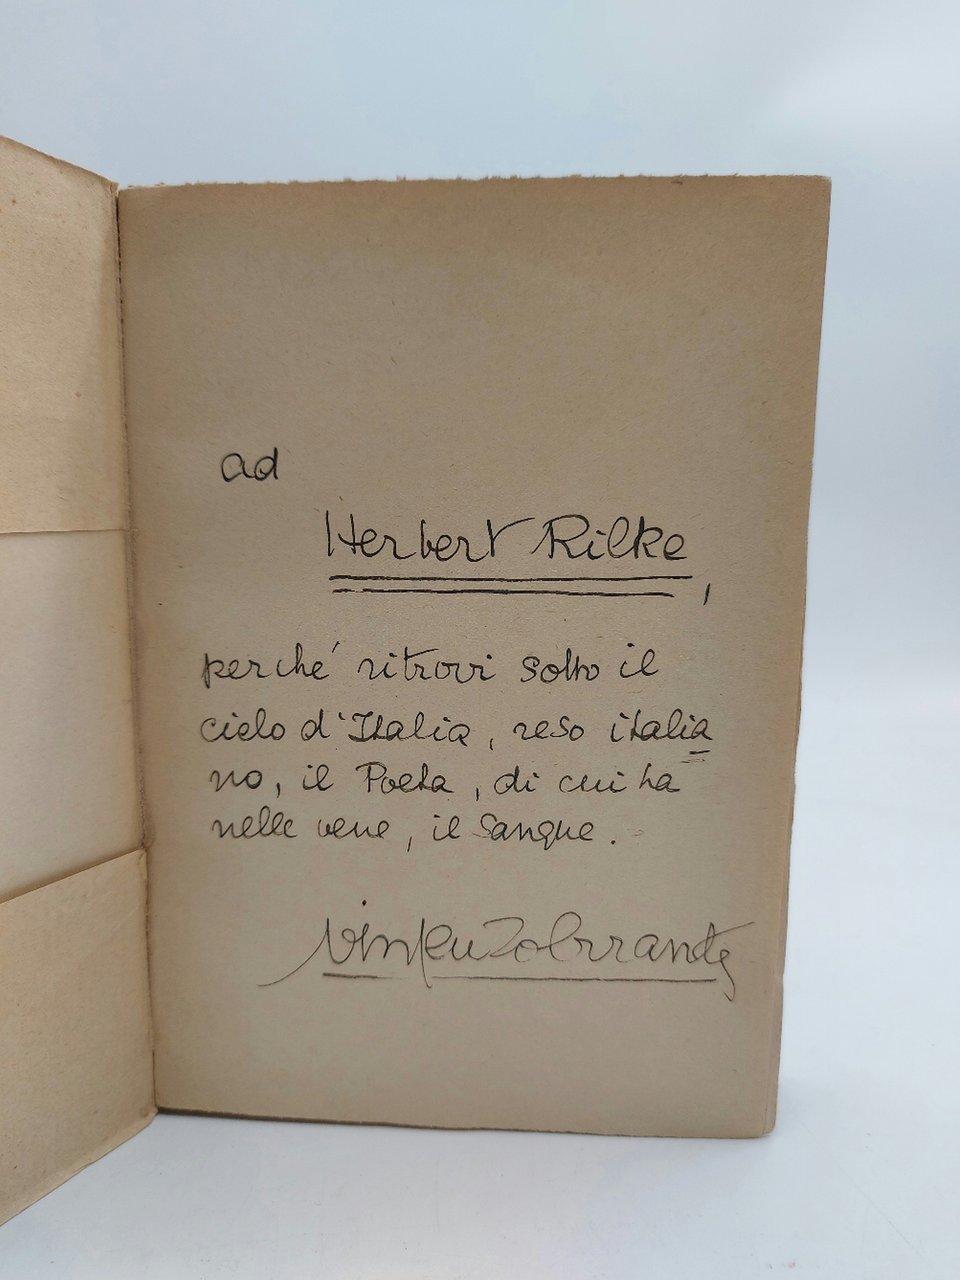 ad
Herbert Rilke,
perché ritrovi sotto il
cielo d'Italia, reso italia
no, il Poeta, di cui ha
nelle vene, il sangue.